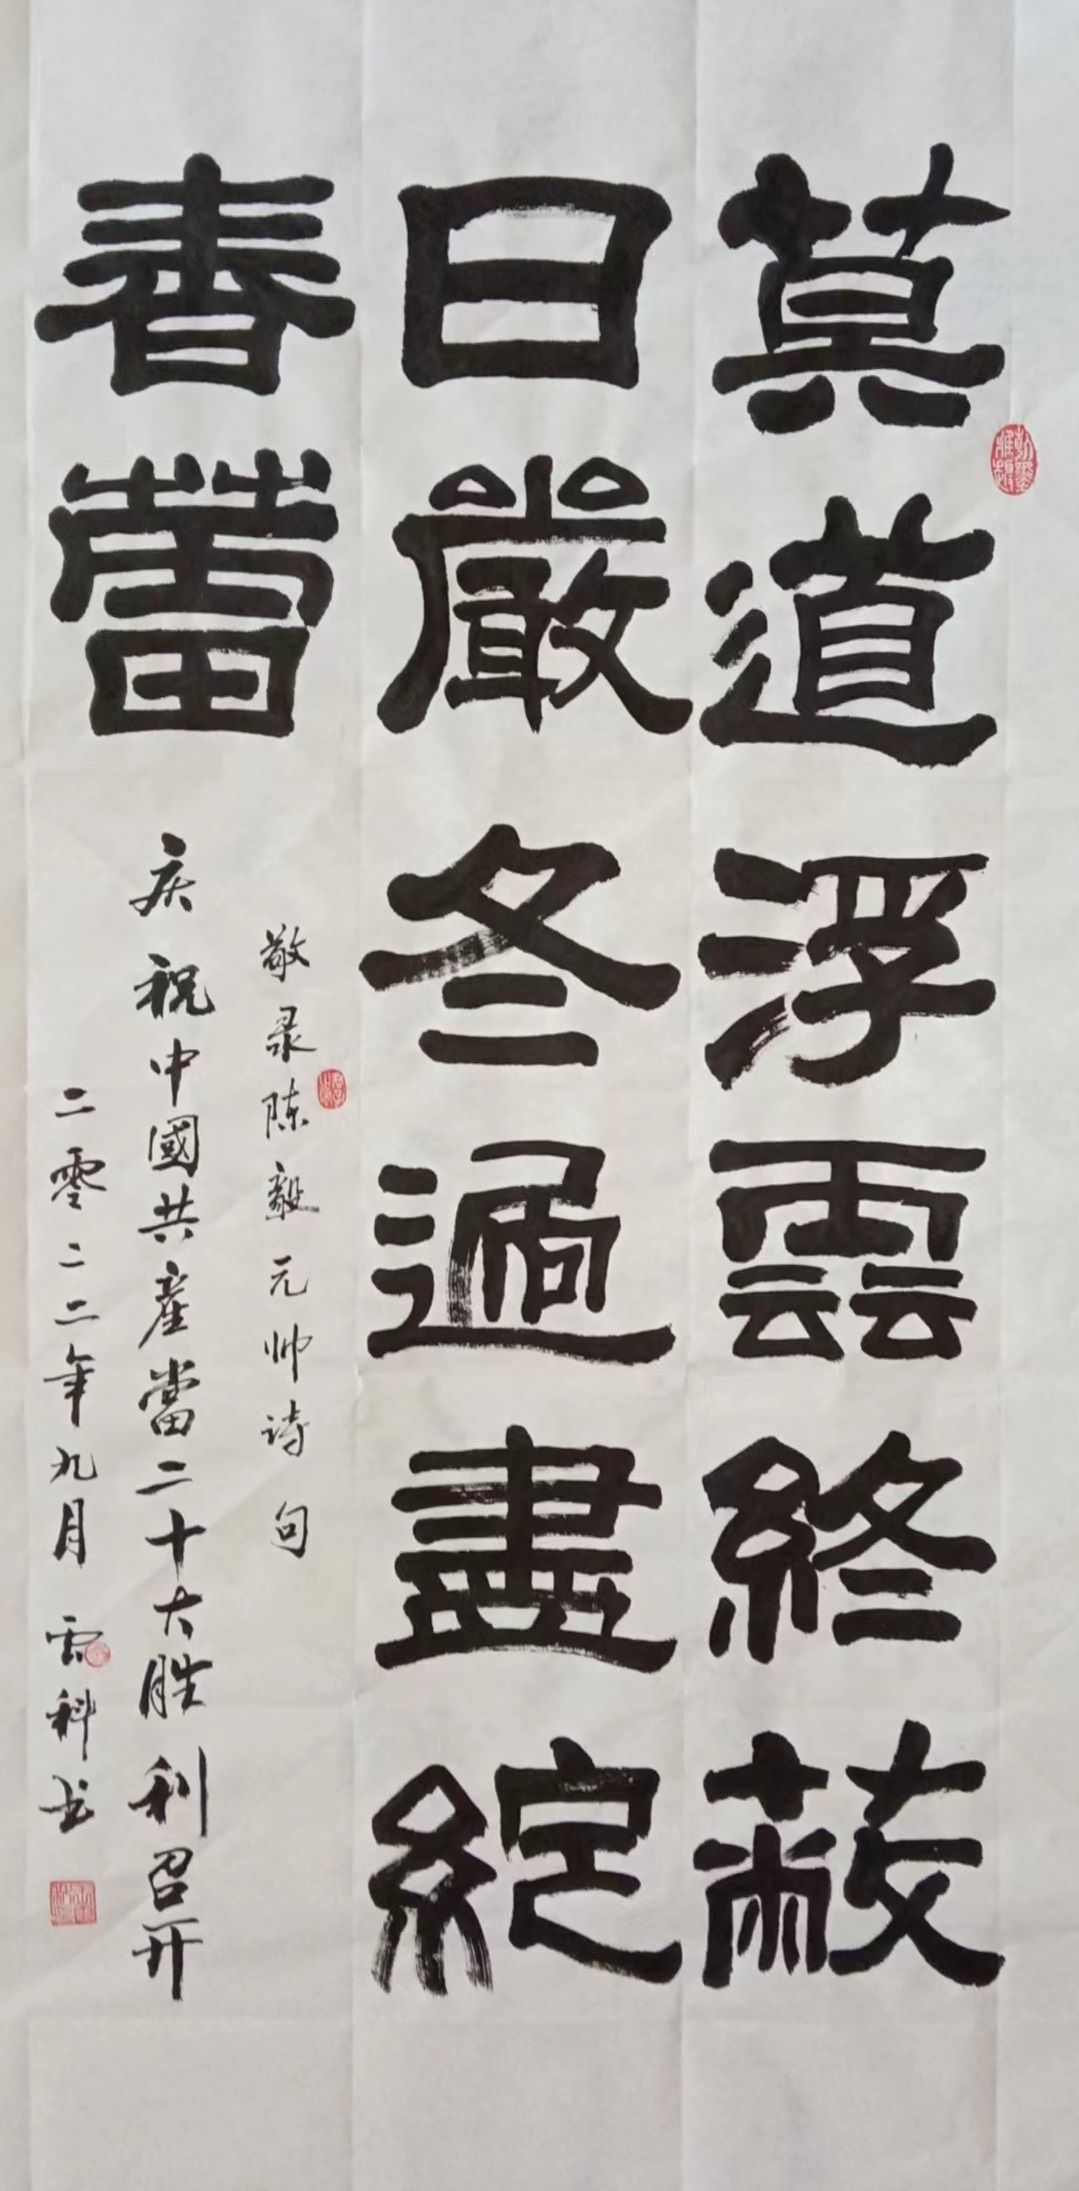 莫道浮雲終蔽
日嚴冬過盡綻
春蕾
敬录陈毅元帅诗句
庆祝中國共產當二十大胜利召开
二零二二年九月 雲科书